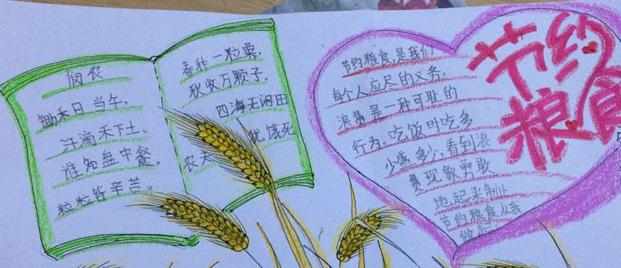 悯农
锄禾日当午,
汗滴禾下土。
谁知盘中餐,
粒粒皆辛苦。
春种一粒粟,
秋收万颗子。
四海无闲田
农夫犹饿死
节约粮食,是我们
每个人应尽的义务。
浪费是一种可耻的
行为。吃饭时吃多
少盛多少,看到浪
费现象勇敢
地起来制止
节约粮食从我
做
节约
粮食